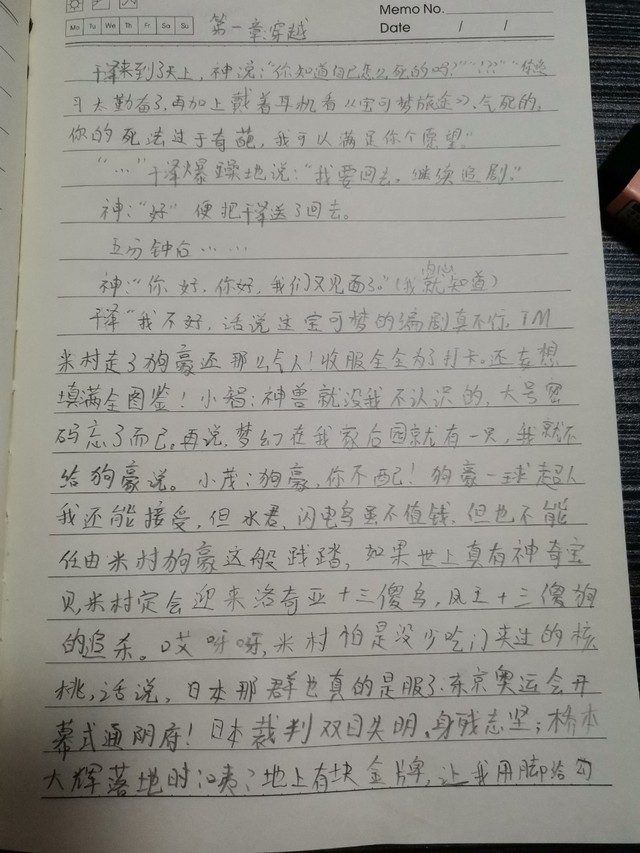 Memo No.
Mo Tu We Th Fr Sa Su
Date / /
第一章:穿越
千泽来到了天上，神说:“你知道自己怎么死的吗?”“!??”“你学
习太勤奋了,再加上戴着耳机看《宝可梦旅途》,气死的,
你的死法过于奇葩，我可以满足你个愿望。”
“…”千泽爆躁地说:“我要回去。继续追剧。”
神:“好”便把千泽送了回去。
五分钟后……
神:“你好,你好,我们又见面了。”(我内心就知道)
千泽“我不好,话说这宝可梦的编剧真不行,TM
米村走了狗豪还那么令人!收服全全为了打卡。还妄想
填满全图鉴!小智:神兽就没我不认识的,大号密
码忘了而已。再说,梦幻在我家后园就有一只,我就不
给狗豪说。小茂:狗豪,你不配!狗豪一球超人
我还能接受,但水君、闪电鸟虽不值钱,但也不能
任由米村狗豪这般践踏,如果世上真有神奇宝
贝,米村定会迎来洛奇亚+三傻鸟,凤王+三傻狗
的追杀。哎呀呀,米村怕是没少吃门夹过的核
桃,话说,日本那群也真的是服了.东京奥运会开
幕式通阴府!日本裁判双目失明、身残志坚;桥本
大辉落地时:咦:地上有块金牌,让我用脚给勾